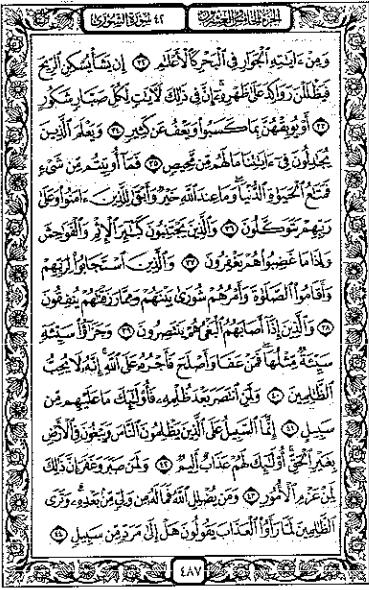 الجزء الخامس والعشرون ٤٢ سورة الشورى
وَمِنْ ءَايَٰتِهِ ٱلْجَوَارِ فِي ٱلْبَحْرِ كَٱلْأَعْلَٰمِ ٣٢ إِن يَشَأْ يُسْكِنِ ٱلرِّيحَ
فَيَظْلَلْنَ رَوَاكِدَ عَلَىٰ ظَهْرِهِۦٓ إِنَّ فِي ذَٰلِكَ لَءَايَٰتٍ لِّكُلِّ صَبَّارٍ شَكُورٍ
٣٣ أَوْ يُوبِقْهُنَّ بِمَا كَسَبُوا۟ وَيَعْفُ عَن كَثِيرٍ ٣٤ وَيَعْلَمَ ٱلَّذِينَ
يُجَٰدِلُونَ فِيٓ ءَايَٰتِنَا مَا لَهُم مِّن مَّحِيصٍ ٣٥ فَمَآ أُوتِيتُم مِّن شَيْءٍ
فَمَتَٰعُ ٱلْحَيَوٰةِ ٱلدُّنْيَا وَمَا عِندَ ٱللَّهِ خَيْرٌ وَأَبْقَىٰ لِلَّذِينَ ءَامَنُوا۟ وَعَلَىٰ
رَبِّهِمْ يَتَوَكَّلُونَ ٣٦ وَٱلَّذِينَ يَجْتَنِبُونَ كَبَٰٓئِرَ ٱلْإِثْمِ وَٱلْفَوَٰحِشَ
وَإِذَا مَا غَضِبُوا۟ هُمْ يَغْفِرُونَ ٣٧ وَٱلَّذِينَ ٱسْتَجَابُوا۟ لِرَبِّهِمْ
وَأَقَامُوا۟ ٱلصَّلَوٰةَ وَأَمْرُهُمْ شُورَىٰ بَيْنَهُمْ وَمِمَّا رَزَقْنَٰهُمْ يُنفِقُونَ
٣٨ وَٱلَّذِينَ إِذَآ أَصَابَهُمُ ٱلْبَغْيُ هُمْ يَنتَصِرُونَ ٣٩ وَجَزَٰٓؤُا۟ سَيِّئَةٍ
سَيِّئَةٌ مِّثْلُهَا فَمَنْ عَفَا وَأَصْلَحَ فَأَجْرُهُۥ عَلَى ٱللَّهِ إِنَّهُۥ لَا يُحِبُّ
ٱلظَّٰلِمِينَ ٤٠ وَلَمَنِ ٱنتَصَرَ بَعْدَ ظُلْمِهِۦ فَأُو۟لَٰٓئِكَ مَا عَلَيْهِم مِّن
سَبِيلٍ ٤١ إِنَّمَا ٱلسَّبِيلُ عَلَى ٱلَّذِينَ يَظْلِمُونَ ٱلنَّاسَ وَيَبْغُونَ فِي ٱلْأَرْضِ
بِغَيْرِ ٱلْحَقِّ أُو۟لَٰٓئِكَ لَهُمْ عَذَابٌ أَلِيمٌ ٤٢ وَلَمَن صَبَرَ وَغَفَرَ إِنَّ ذَٰلِكَ
لَمِنْ عَزْمِ ٱلْأُمُورِ ٤٣ وَمَن يُضْلِلِ ٱللَّهُ فَمَا لَهُۥ مِن وَلِيٍّ مِّنۢ بَعْدِهِۦ وَتَرَى
ٱلظَّٰلِمِينَ لَمَّا رَأَوُا۟ ٱلْعَذَابَ يَقُولُونَ هَلْ إِلَىٰ مَرَدٍّ مِّن سَبِيلٍ ٤٤
٤٨٧